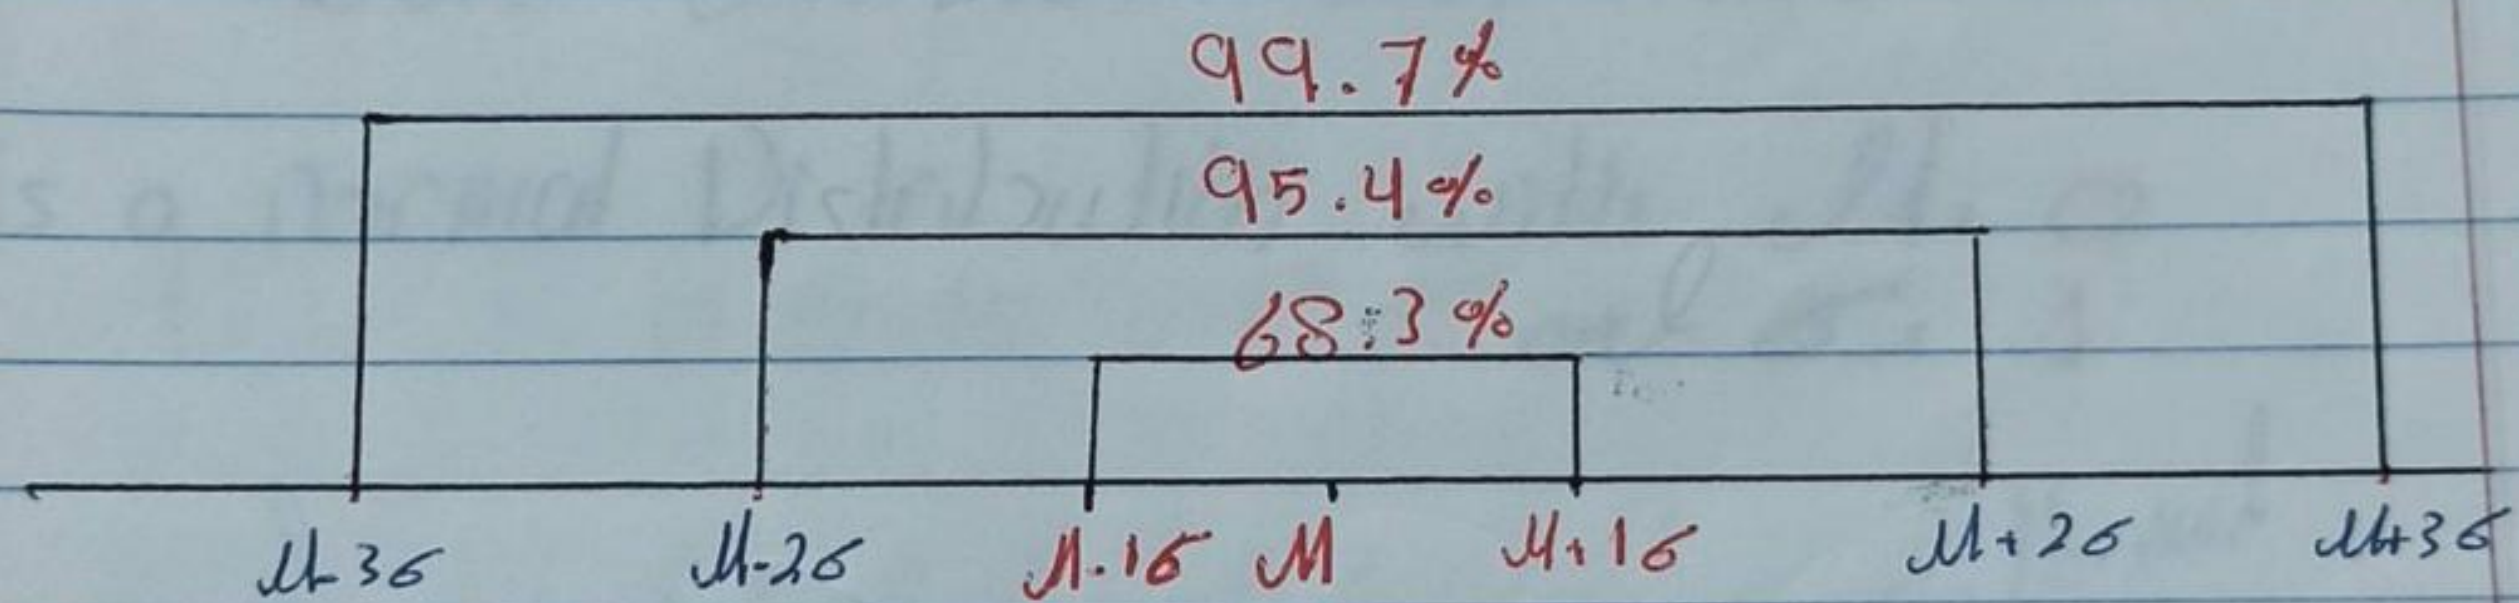 99.7%
95.4%
68.3%
μ-3σ μ-2σ μ-1σ μ μ+1σ μ+2σ μ+3σ